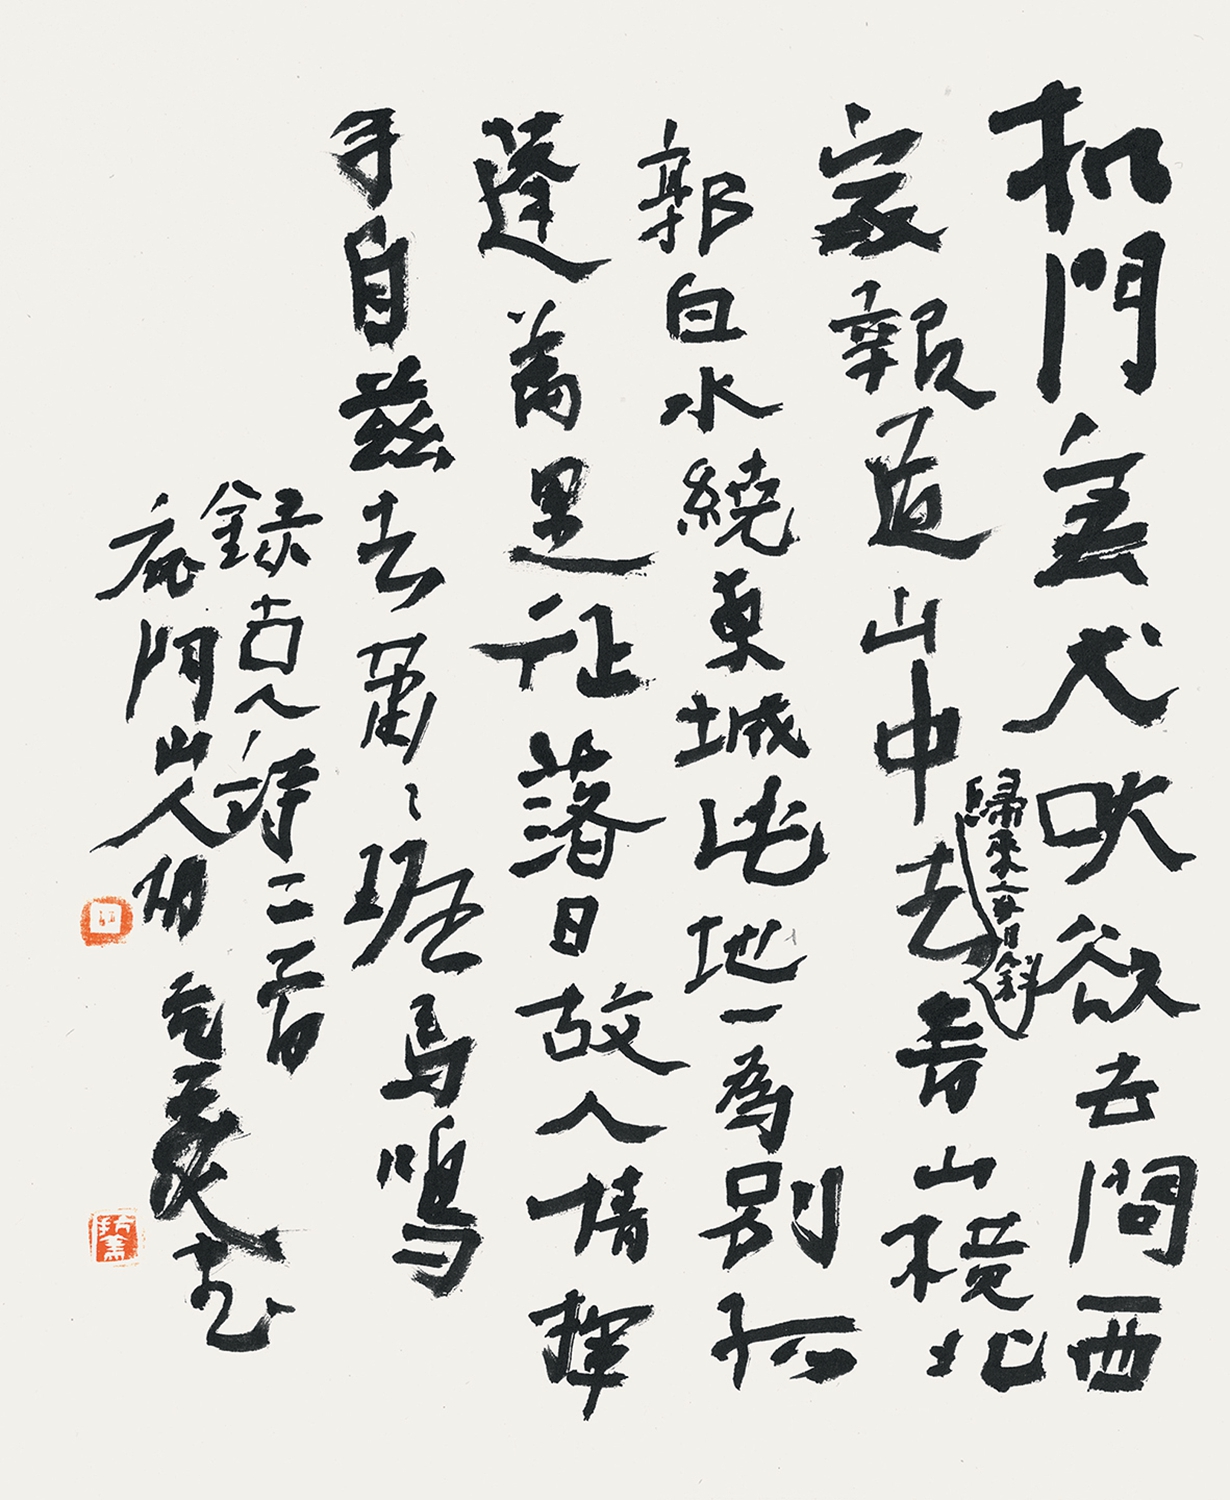 扣門無犬吠欲去問西
家報道山中去歸來每日斜青山橫北
郭白水繞東城此地一為別孤
蓬萬里征落日故人情揮
手自茲去蕭〻班馬鳴
錄古人詩二首
鹿門山人胡抗美書
抗美